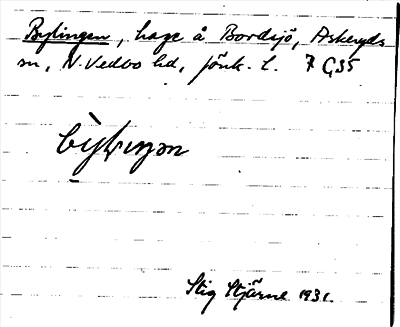 Bylingen, hage å Bordsjö, Askeryds
sn, N. Vedbo hd, Jönk. l. 7 G35
Stig Stjärne 1931.